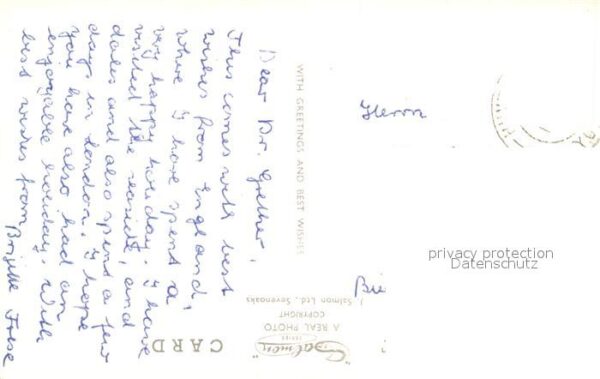 Dear Dr. Grether,
This comes with best
wishes from England,
where I have spent a
very happy holiday. I have
visited the resicts, and
dales and also spent a few
days in London. I hope
you have also had an
enjoyable holiday. With
best wishes from
Brigitte
WITH GREETINGS AND BEST WISHES
J. Salmon Ltd., Sevenoaks
COPYRIGHT
A REAL PHOTO
"Salmon"
SERIES
CARD
Herrn
Bie
privacy protection
Datenschutz